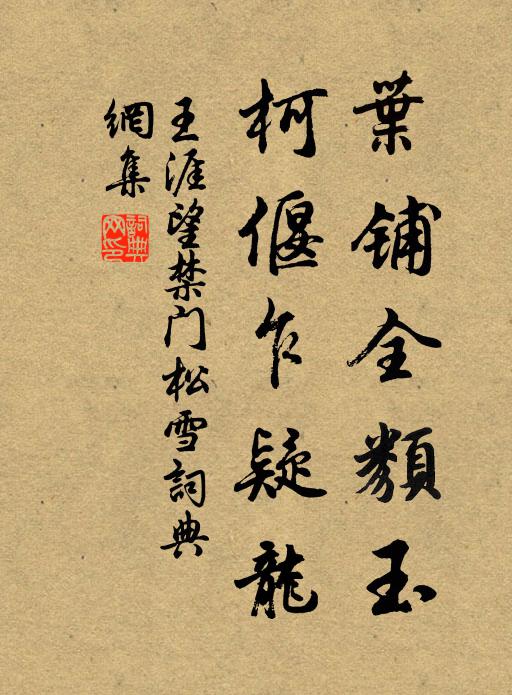 葉鋪全類玉
柯偃乍疑龍
王涯望禁門松雪詞典
網集
詞典網印